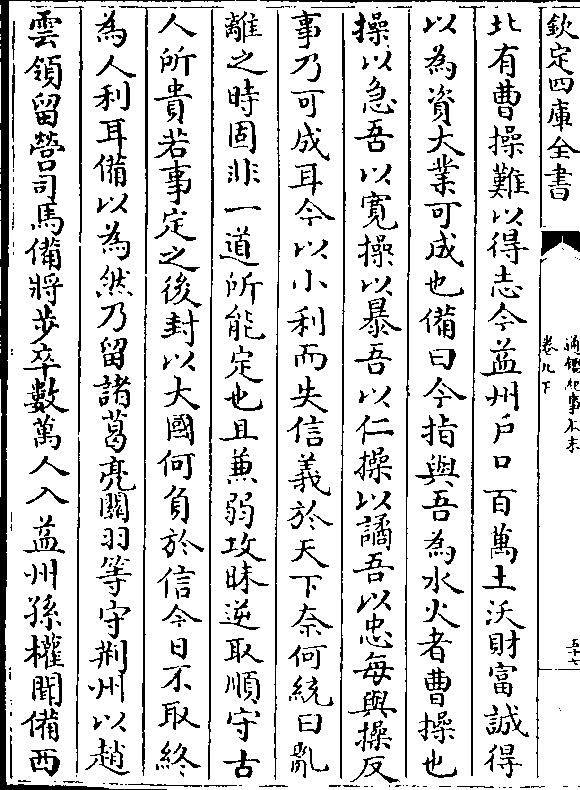 欽定四庫全書
通鑑紀事本末
卷九下
三十七
北有曹操難以得志今益州户口百萬土沃財富誠得
以為資大業可成也備曰今指與吾為水火者曹操也
操以急吾以寛操以暴吾以仁操以譎吾以忠每與操反
事乃可成耳今以小利而失信義於天下奈何統曰亂
離之時固非一道所能定也且兼弱攻昧逆取順守古
人所貴若事定之後封以大國何負於信今日不取終
為人利耳備以為然乃留諸葛亮關羽等守荆州以趙
雲領留營司馬備將步卒數萬人入益州孫權聞備西